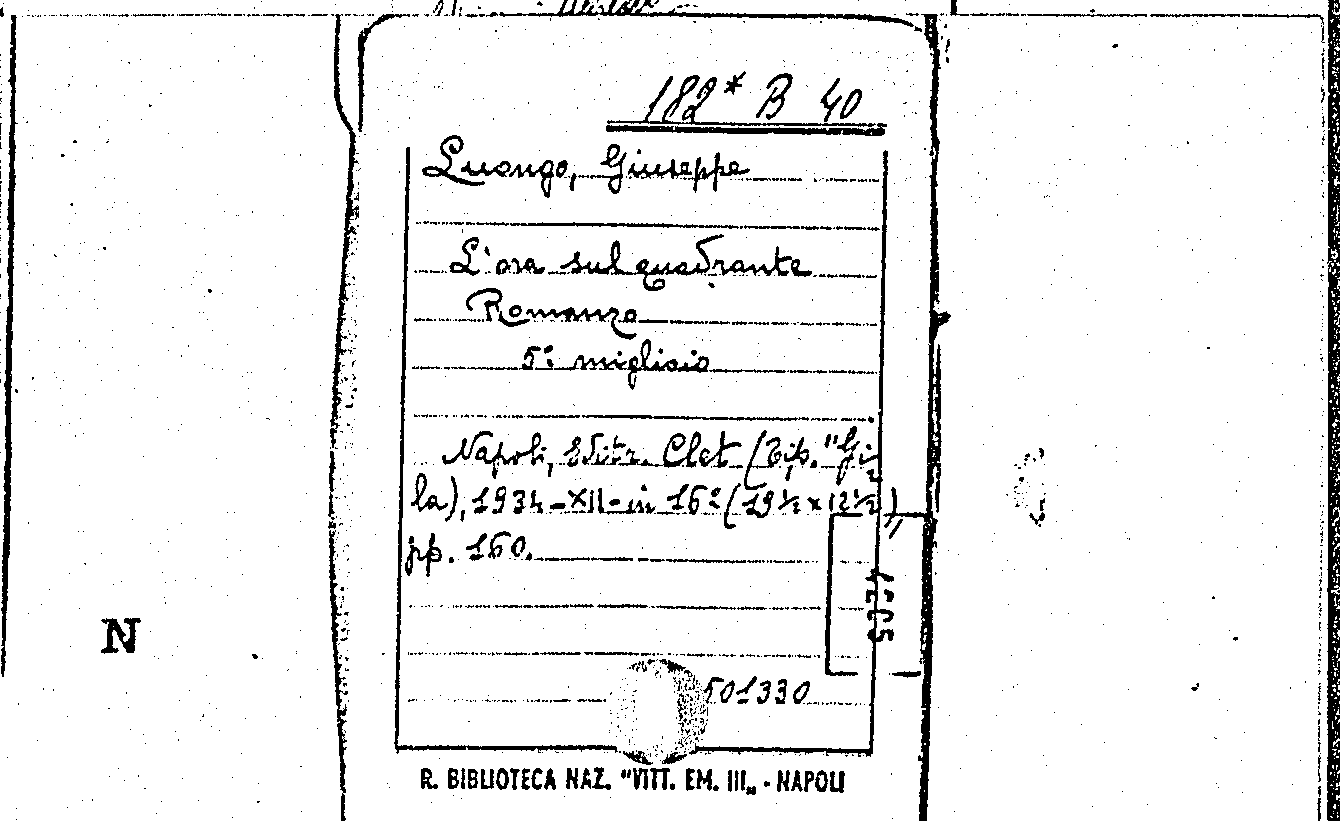 182* B 40
Luongo, Giuseppe
L'ora sul quadrante
Romanzo
5º migliaio
Napoli, Editr. Clet (Tip. "Gi-
la), 1934-XII- in 16º (19½ x 12½)
pp. 160.
N
501330
R. BIBLIOTECA NAZ. "VITT. EM. III„ - NAPOLI